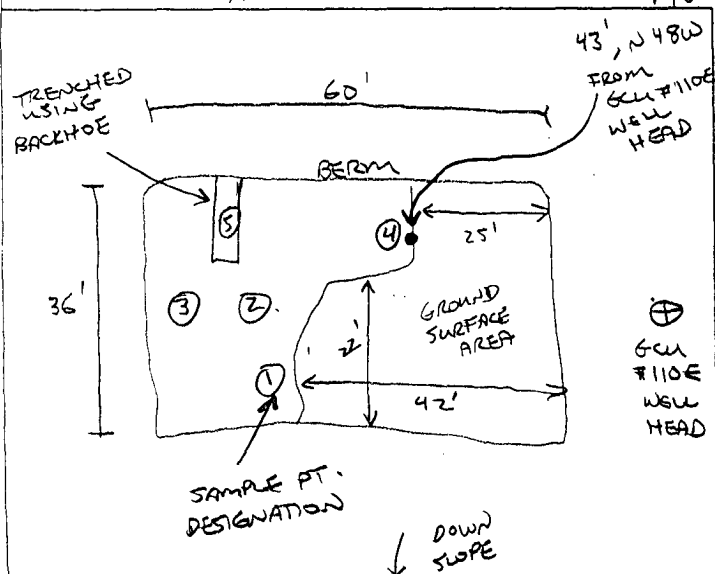 43', N48W
FROM
GCU #110E
WELL
HEAD
TRENCHED
USING
BACKHOE
60'
BERM
5
4
25'
36'
3
2
GROUND
SURFACE
AREA
22'
GCU
#110E
WELL
HEAD
1
42'
SAMPLE PT.
DESIGNATION
DOWN
SLOPE